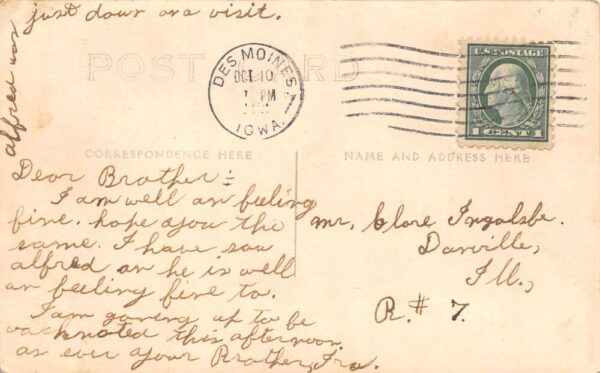 just down on a visit.
alfred was
POST CARD
DES MOINES
OCT 10
1 PM
IOWA.
U.S. POSTAGE
1 CENT 1
CORRESPONDENCE HERE
NAME AND ADDRESS HERE
Dear Brother:
I am well an feeling
fine. hope you the
same. I have saw
alfred an he is well
an feeling fine to.
I am goning up to be
vacknoted this afternoon
as ever your Brother, Ira.
Mr. Clore Ingalsbe.
Danville,
Ill.,
R. # 7.